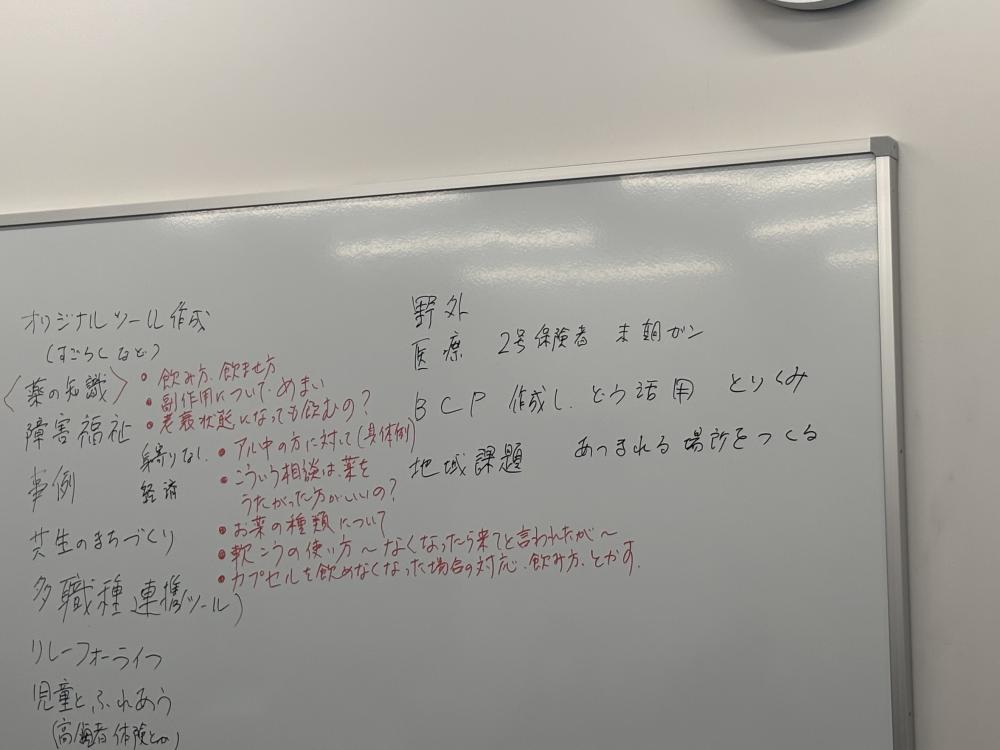 オリジナルツール作成
(すごろくなど)
〈薬の知識〉
・飲み方、飲ませ方
・副作用について、めまい
・老衰状態になっても飲むの?
障害福祉
・アル中の方に対して(具体例)
事例 身寄りなし
経済
・こういう相談は、薬を
うたがった方がいいの?
・お薬の種類について
共生のまちづくり
・軟こうの使い方〜なくなったら来てと言われたが〜
・カプセルを飲めなくなった場合の対応、飲み方、とかす
多職種連携(ツール)
リレーフォーライフ
児童とふれあう
(高齢者体験とか)
野外
医療 2号保険者 末期ガン
BCP 作成し、どう活用 とりくみ
地域課題 あつまれる場所をつくる